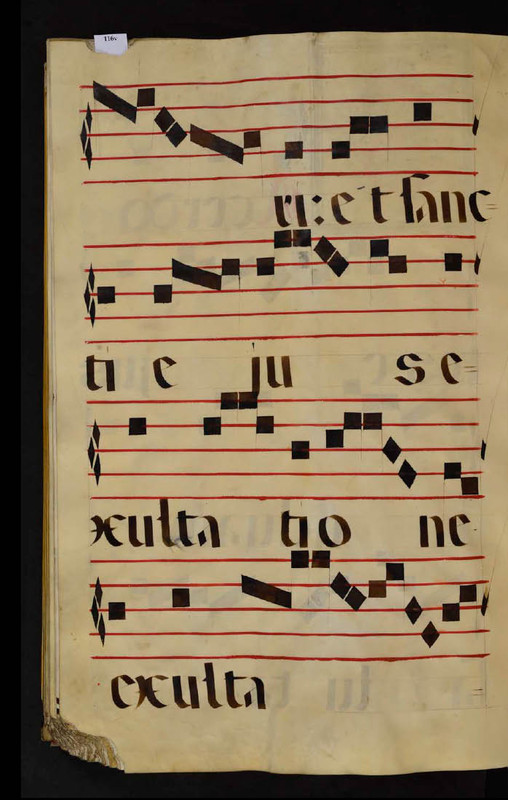 116v
rr: et sanc=
ti e ju se=
exulta tio ne
exulta =